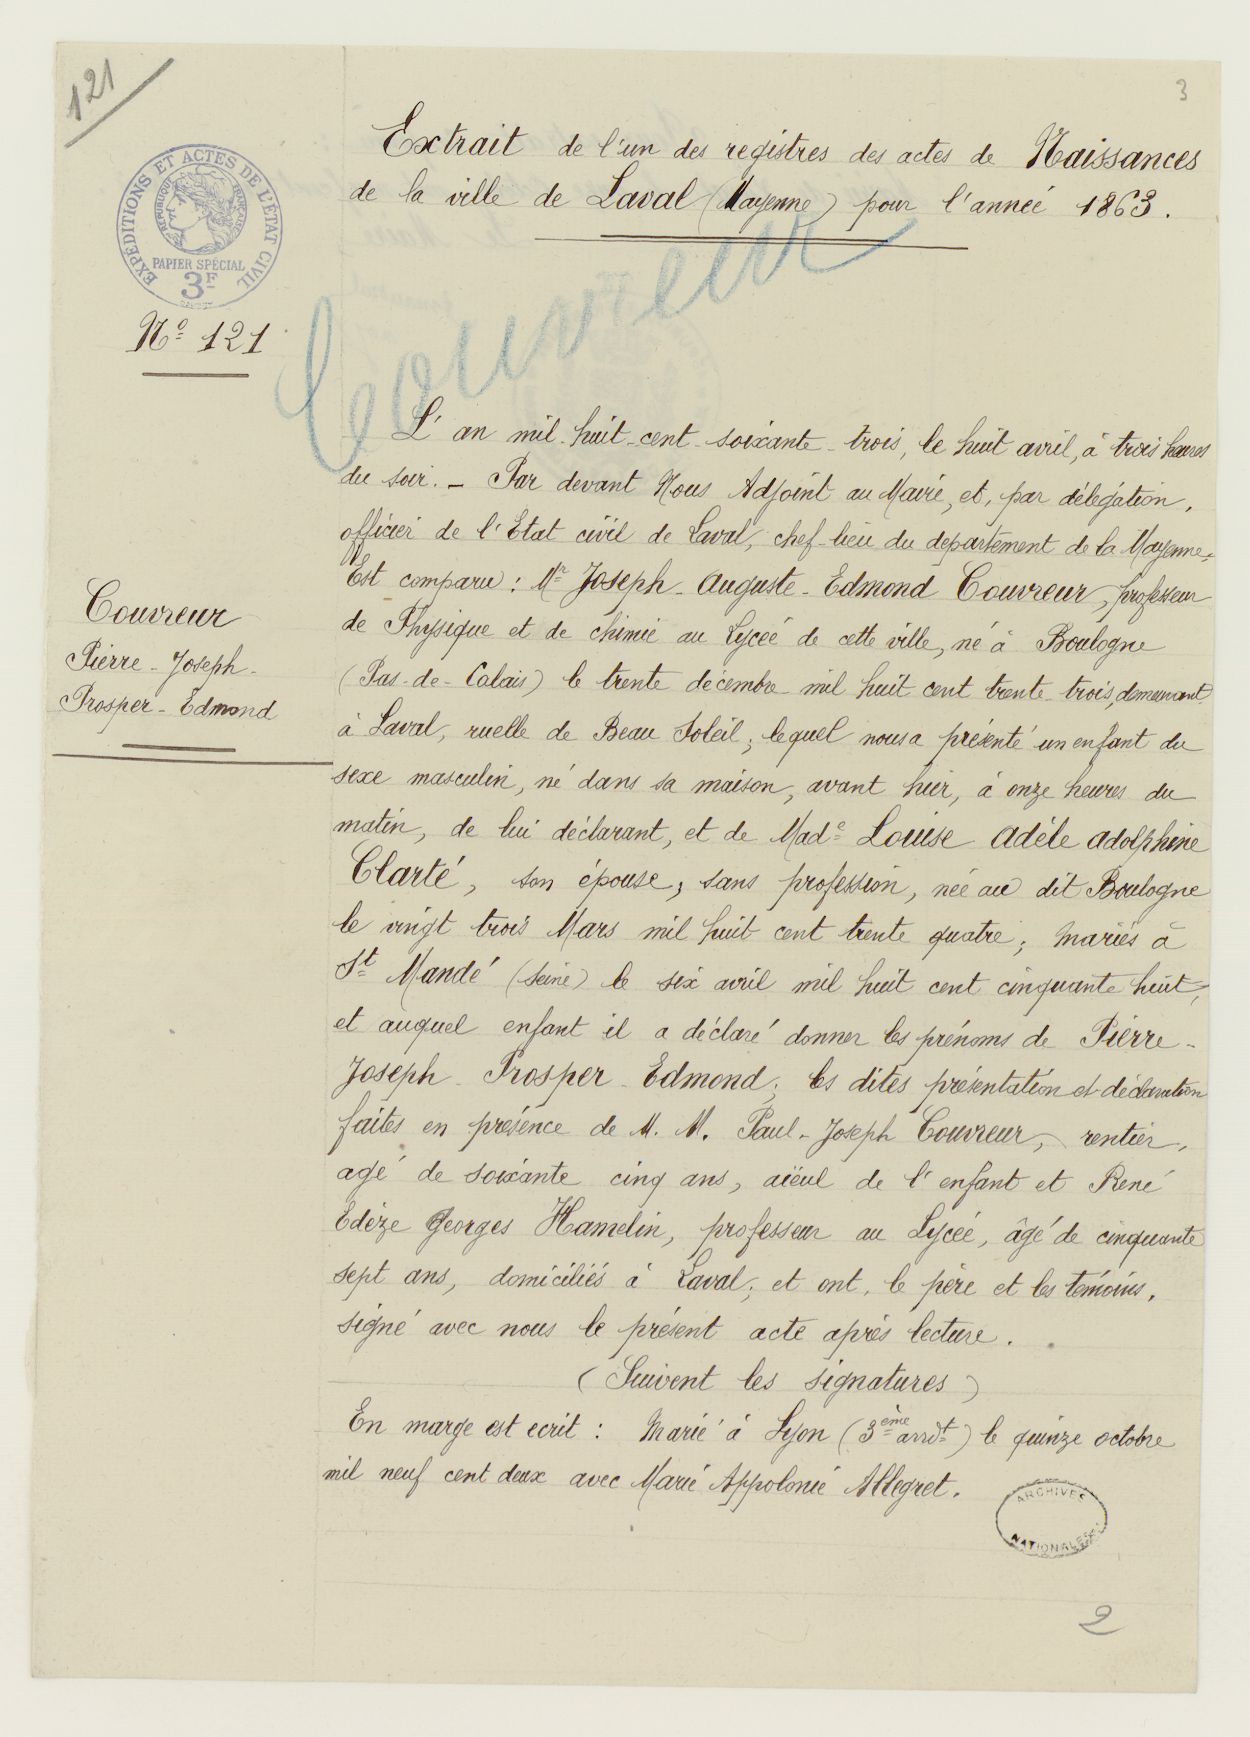 121
3
EXPÉDITIONS ET ACTES DE L'ÉTAT CIVIL
RÉPUBLIQUE FRANÇAISE
PAPIER SPÉCIAL
3F
Nº 121
Couvreur
Extrait de l'un des registres des actes de Naissances
de la ville de Laval (Mayenne) pour l'année 1863.
Couvreur
Pierre-Joseph-
Prosper-Edmond
L'an mil-huit-cent-soixante-trois, le huit avril, à trois heures
du soir. - Par devant Nous Adjoint au Maire, et, par délégation,
officier de l'Etat civil de Laval, chef-lieu du département de la Mayenne,
Est comparu : Mr Joseph-Auguste-Edmond Couvreur, professeur
de Physique et de chimie au Lycée de cette ville, né à Boulogne
(Pas-de-Calais) le trente décembre mil huit cent trente-trois, demeurant
à Laval, ruelle de Beau Soleil ; lequel nous a présenté un enfant du
sexe masculin, né dans sa maison, avant hier, à onze heures du
matin, de lui déclarant, et de Made Louise Adèle Adolphine
Clarté, son épouse, sans profession, née au dit Boulogne
le vingt trois Mars mil huit cent trente quatre ; mariés à
St Mandé (Seine) le six avril mil huit cent cinquante huit,
et auquel enfant il a déclaré donner les prénoms de Pierre-
Joseph-Prosper-Edmond ; les dites présentation et déclaration
faites en présence de M. M. Paul-Joseph Couvreur, rentier,
agé de soixante cinq ans, aïeul de l'enfant et René
Edèze Georges Hamelin, professeur au Lycée, âgé de cinquante
sept ans, domiciliés à Laval ; et ont, le père et les témoins,
signé avec nous le présent acte après lecture.
(Suivent les signatures)
En marge est ecrit : Marié à Lyon (3ème arrdt) le quinze octobre
mil neuf cent deux avec Marie Appolonie Allegret.
ARCHIVES
NATIONALES
2